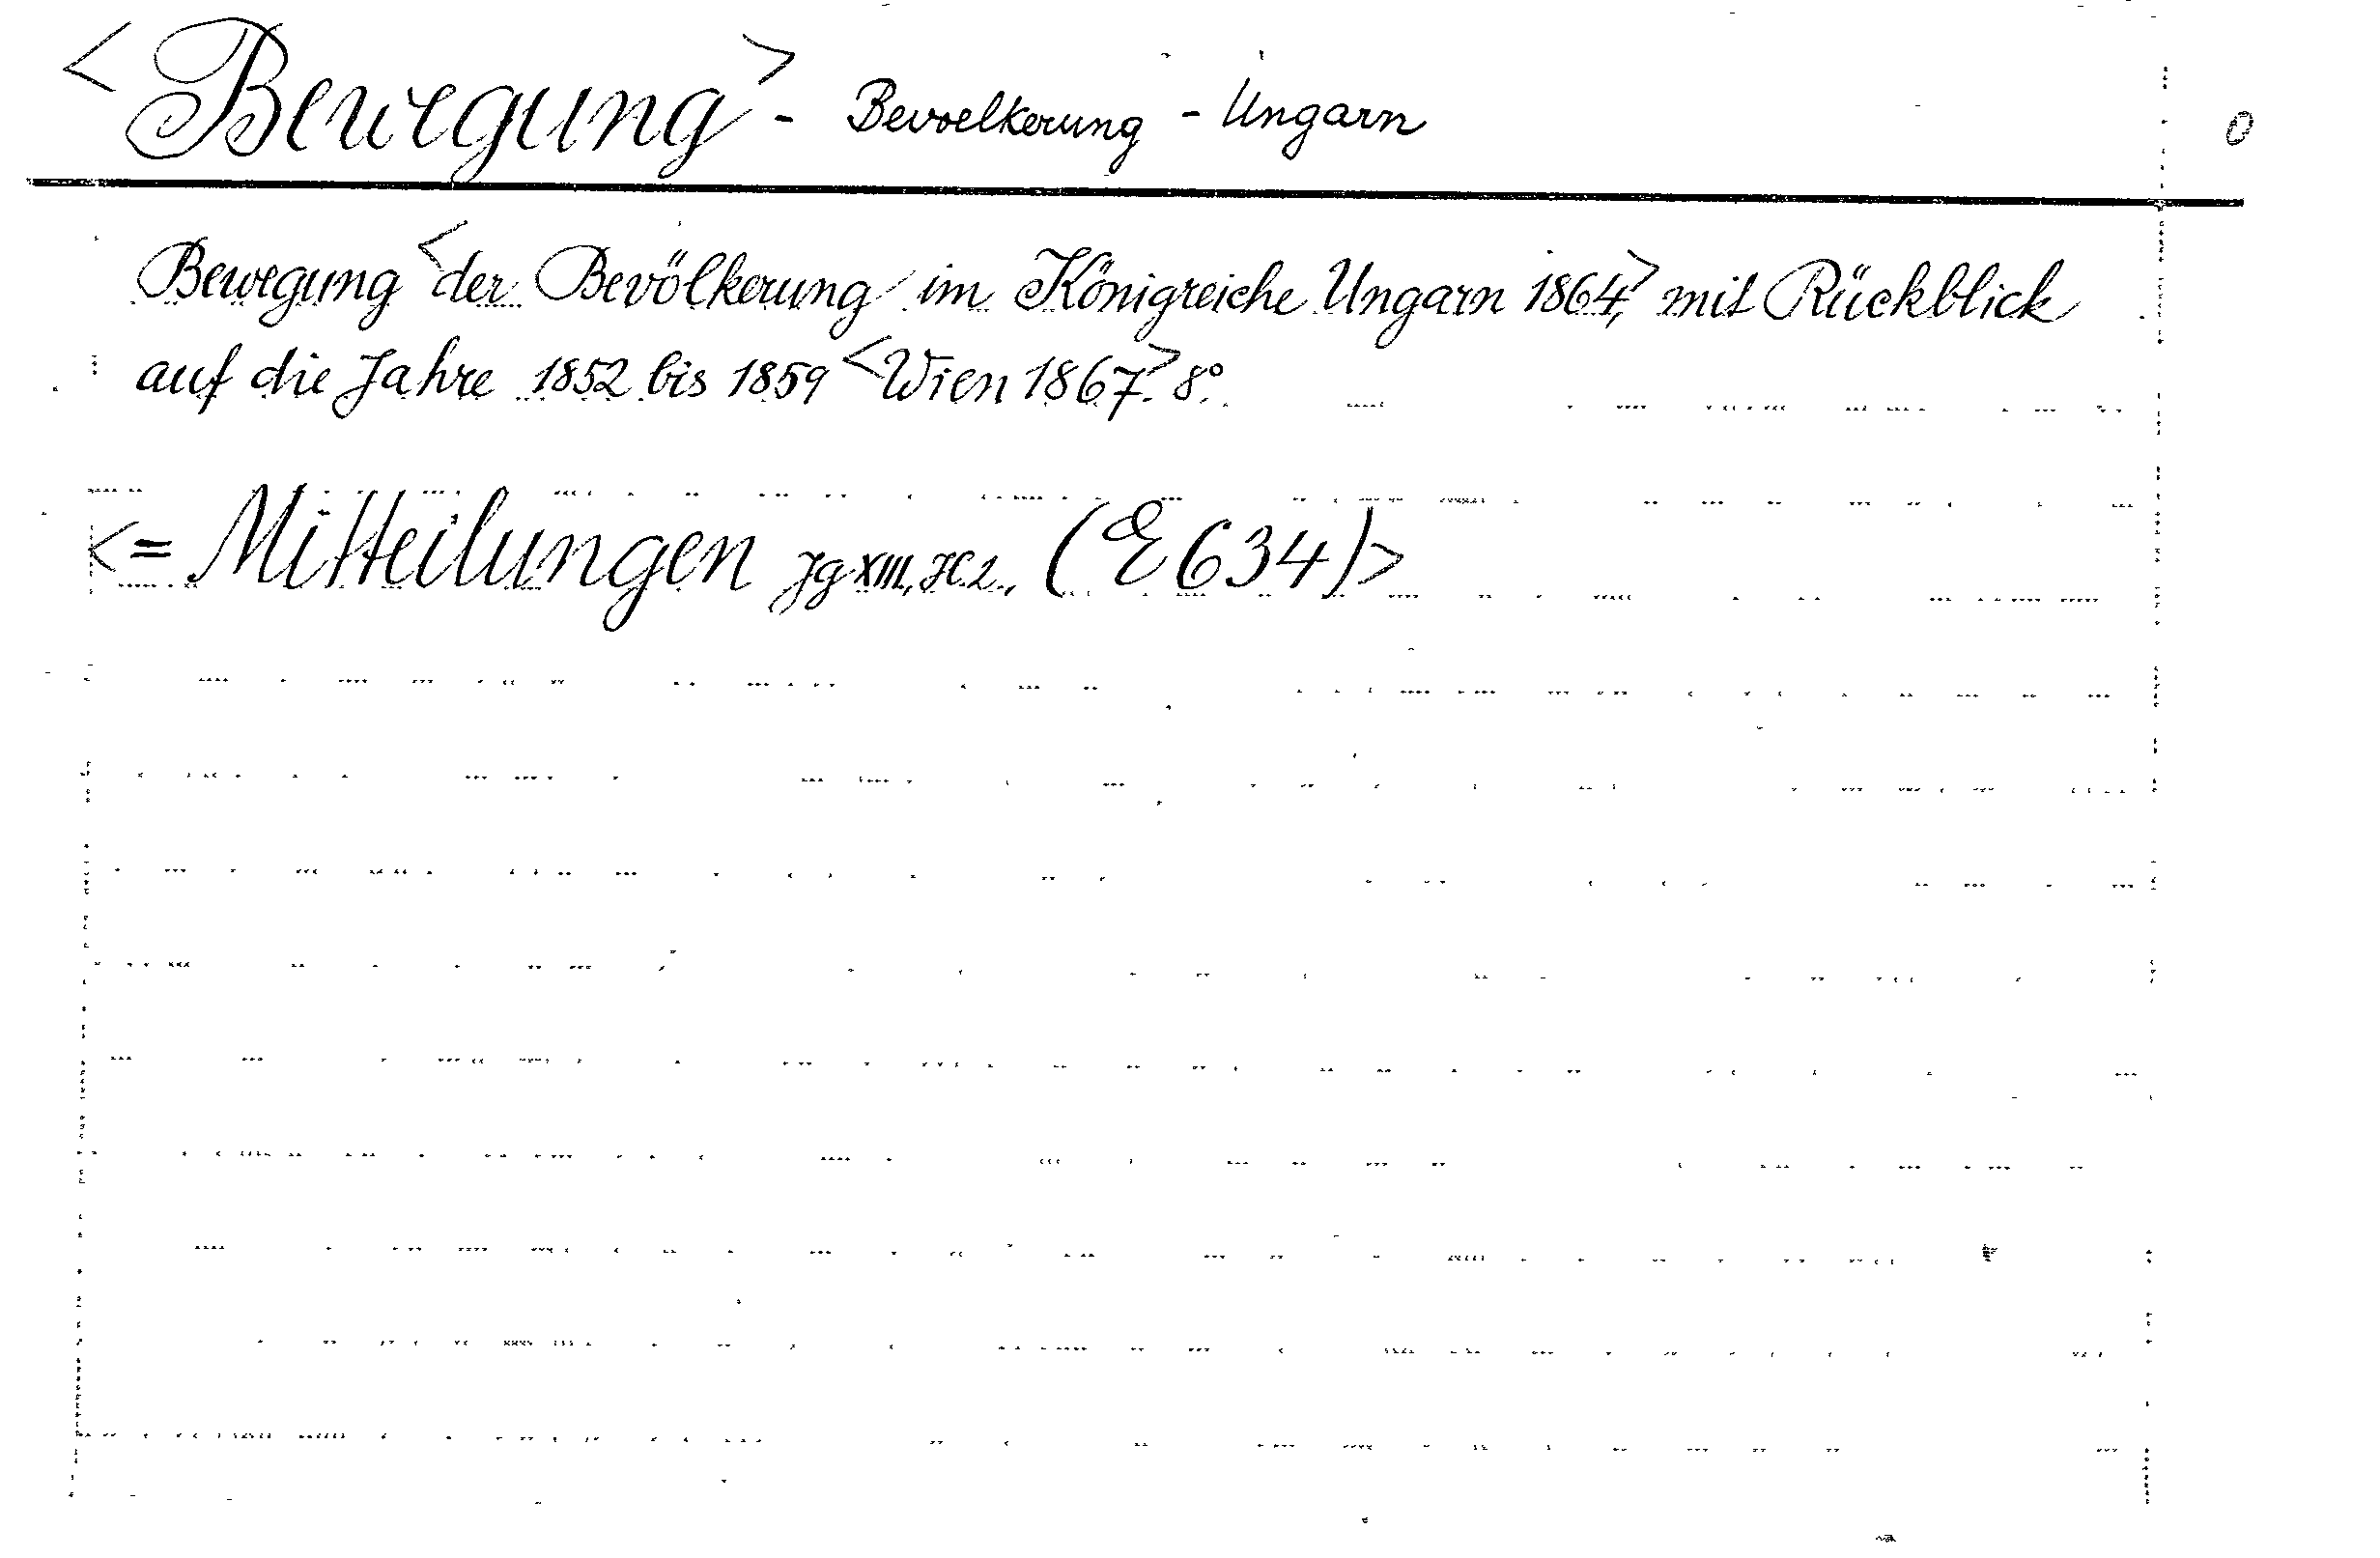 <Bewegung> - Bevoelkerung - Ungarn
0
Bewegung <der Bevölkerung im Königreiche Ungarn 1864,> mit Rückblick
auf die Jahre 1852 bis 1859 <Wien 1867.> 8°.
<= Mitteilungen Jg XIII, H. 2., (E 634)>